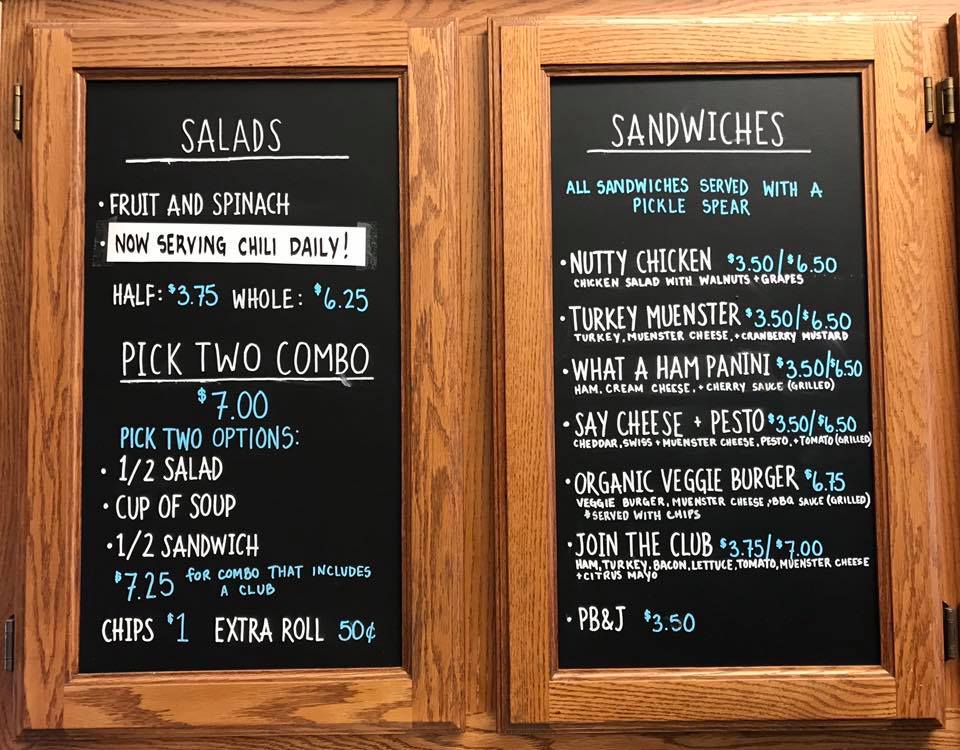 SALADS
• FRUIT AND SPINACH
• NOW SERVING CHILI DAILY!
HALF: $3.75 WHOLE: $6.25
PICK TWO COMBO
$7.00
PICK TWO OPTIONS:
• 1/2 SALAD
• CUP OF SOUP
• 1/2 SANDWICH
$7.25 FOR COMBO THAT INCLUDES
A CLUB
CHIPS $1 EXTRA ROLL 50¢
SANDWICHES
ALL SANDWICHES SERVED WITH A
PICKLE SPEAR
• NUTTY CHICKEN $3.50/$6.50
CHICKEN SALAD WITH WALNUTS + GRAPES
• TURKEY MUENSTER $3.50/$6.50
TURKEY, MUENSTER CHEESE, + CRANBERRY MUSTARD
• WHAT A HAM PANINI $3.50/$6.50
HAM, CREAM CHEESE, + CHERRY SAUCE (GRILLED)
• SAY CHEESE + PESTO $3.50/$6.50
CHEDDAR, SWISS + MUENSTER CHEESE, PESTO, + TOMATO (GRILLED)
• ORGANIC VEGGIE BURGER $6.75
VEGGIE BURGER, MUENSTER CHEESE, + BBQ SAUCE (GRILLED)
+ SERVED WITH CHIPS
• JOIN THE CLUB $3.75/$7.00
HAM, TURKEY, BACON, LETTUCE, TOMATO, MUENSTER CHEESE
+ CITRUS MAYO
• PB&J $3.50